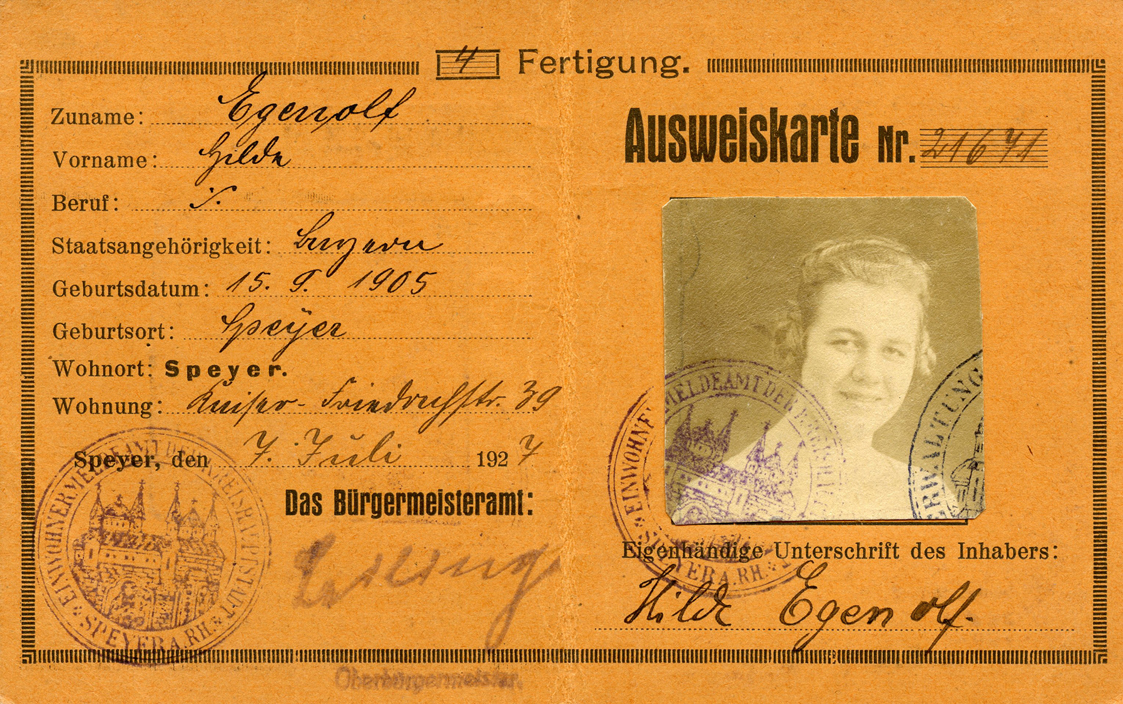 4 Fertigung.
Zuname: Egenolf
Vorname: Hilde
Beruf: ·/.
Staatsangehörigkeit: Bayern
Geburtsdatum: 15. 9. 1905
Geburtsort: Speyer
Wohnort: Speyer.
Wohnung: Kaiser-Friedrichstr. 39
Speyer, den 7. Juli 1927
Das Bürgermeisteramt:
Oberbürgermeister.
EINWOHNERMELDEAMT DER KREISHAUPTSTADT
SPEYER A. RH.
Ausweiskarte Nr. 21671
EINWOHNERMELDEAMT DER KREISHAUPTSTADT
SPEYER A. RH.
Eigenhändige Unterschrift des Inhabers:
Hilde Egenolf.